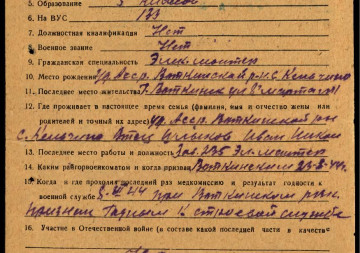 5. Образование 5 классов
6. На ВУС 133
7. Должностная квалификация Нет
8. Военное звание Нет
9. Гражданская специальность Электмонтер
10. Место рождения Ур. Асср. Воткинский р-н с Кельчино
11. Последнее место жительства Г. Воткинск ул 8 марта
12. Где проживает в настоящее время семья (фамилии, имя и отчество жены или
родителей и точный их адрес) Ур. Асср. Воткинский р-н
с. Кельчино Отец Иван
13. Последнее место работы и должность Зав. 235 Эл. монтер
14. Каким райгорвоенкоматом и когда призван Воткинским 23-8-44г.
15. Когда и где проходил последний раз медкомиссию и результат годности к
военной службе 8-III 44 при Воткинском рвк.
признан Годным к строевой службе
16. Участие в Отечественной войне (в составе какой последней части в качестве